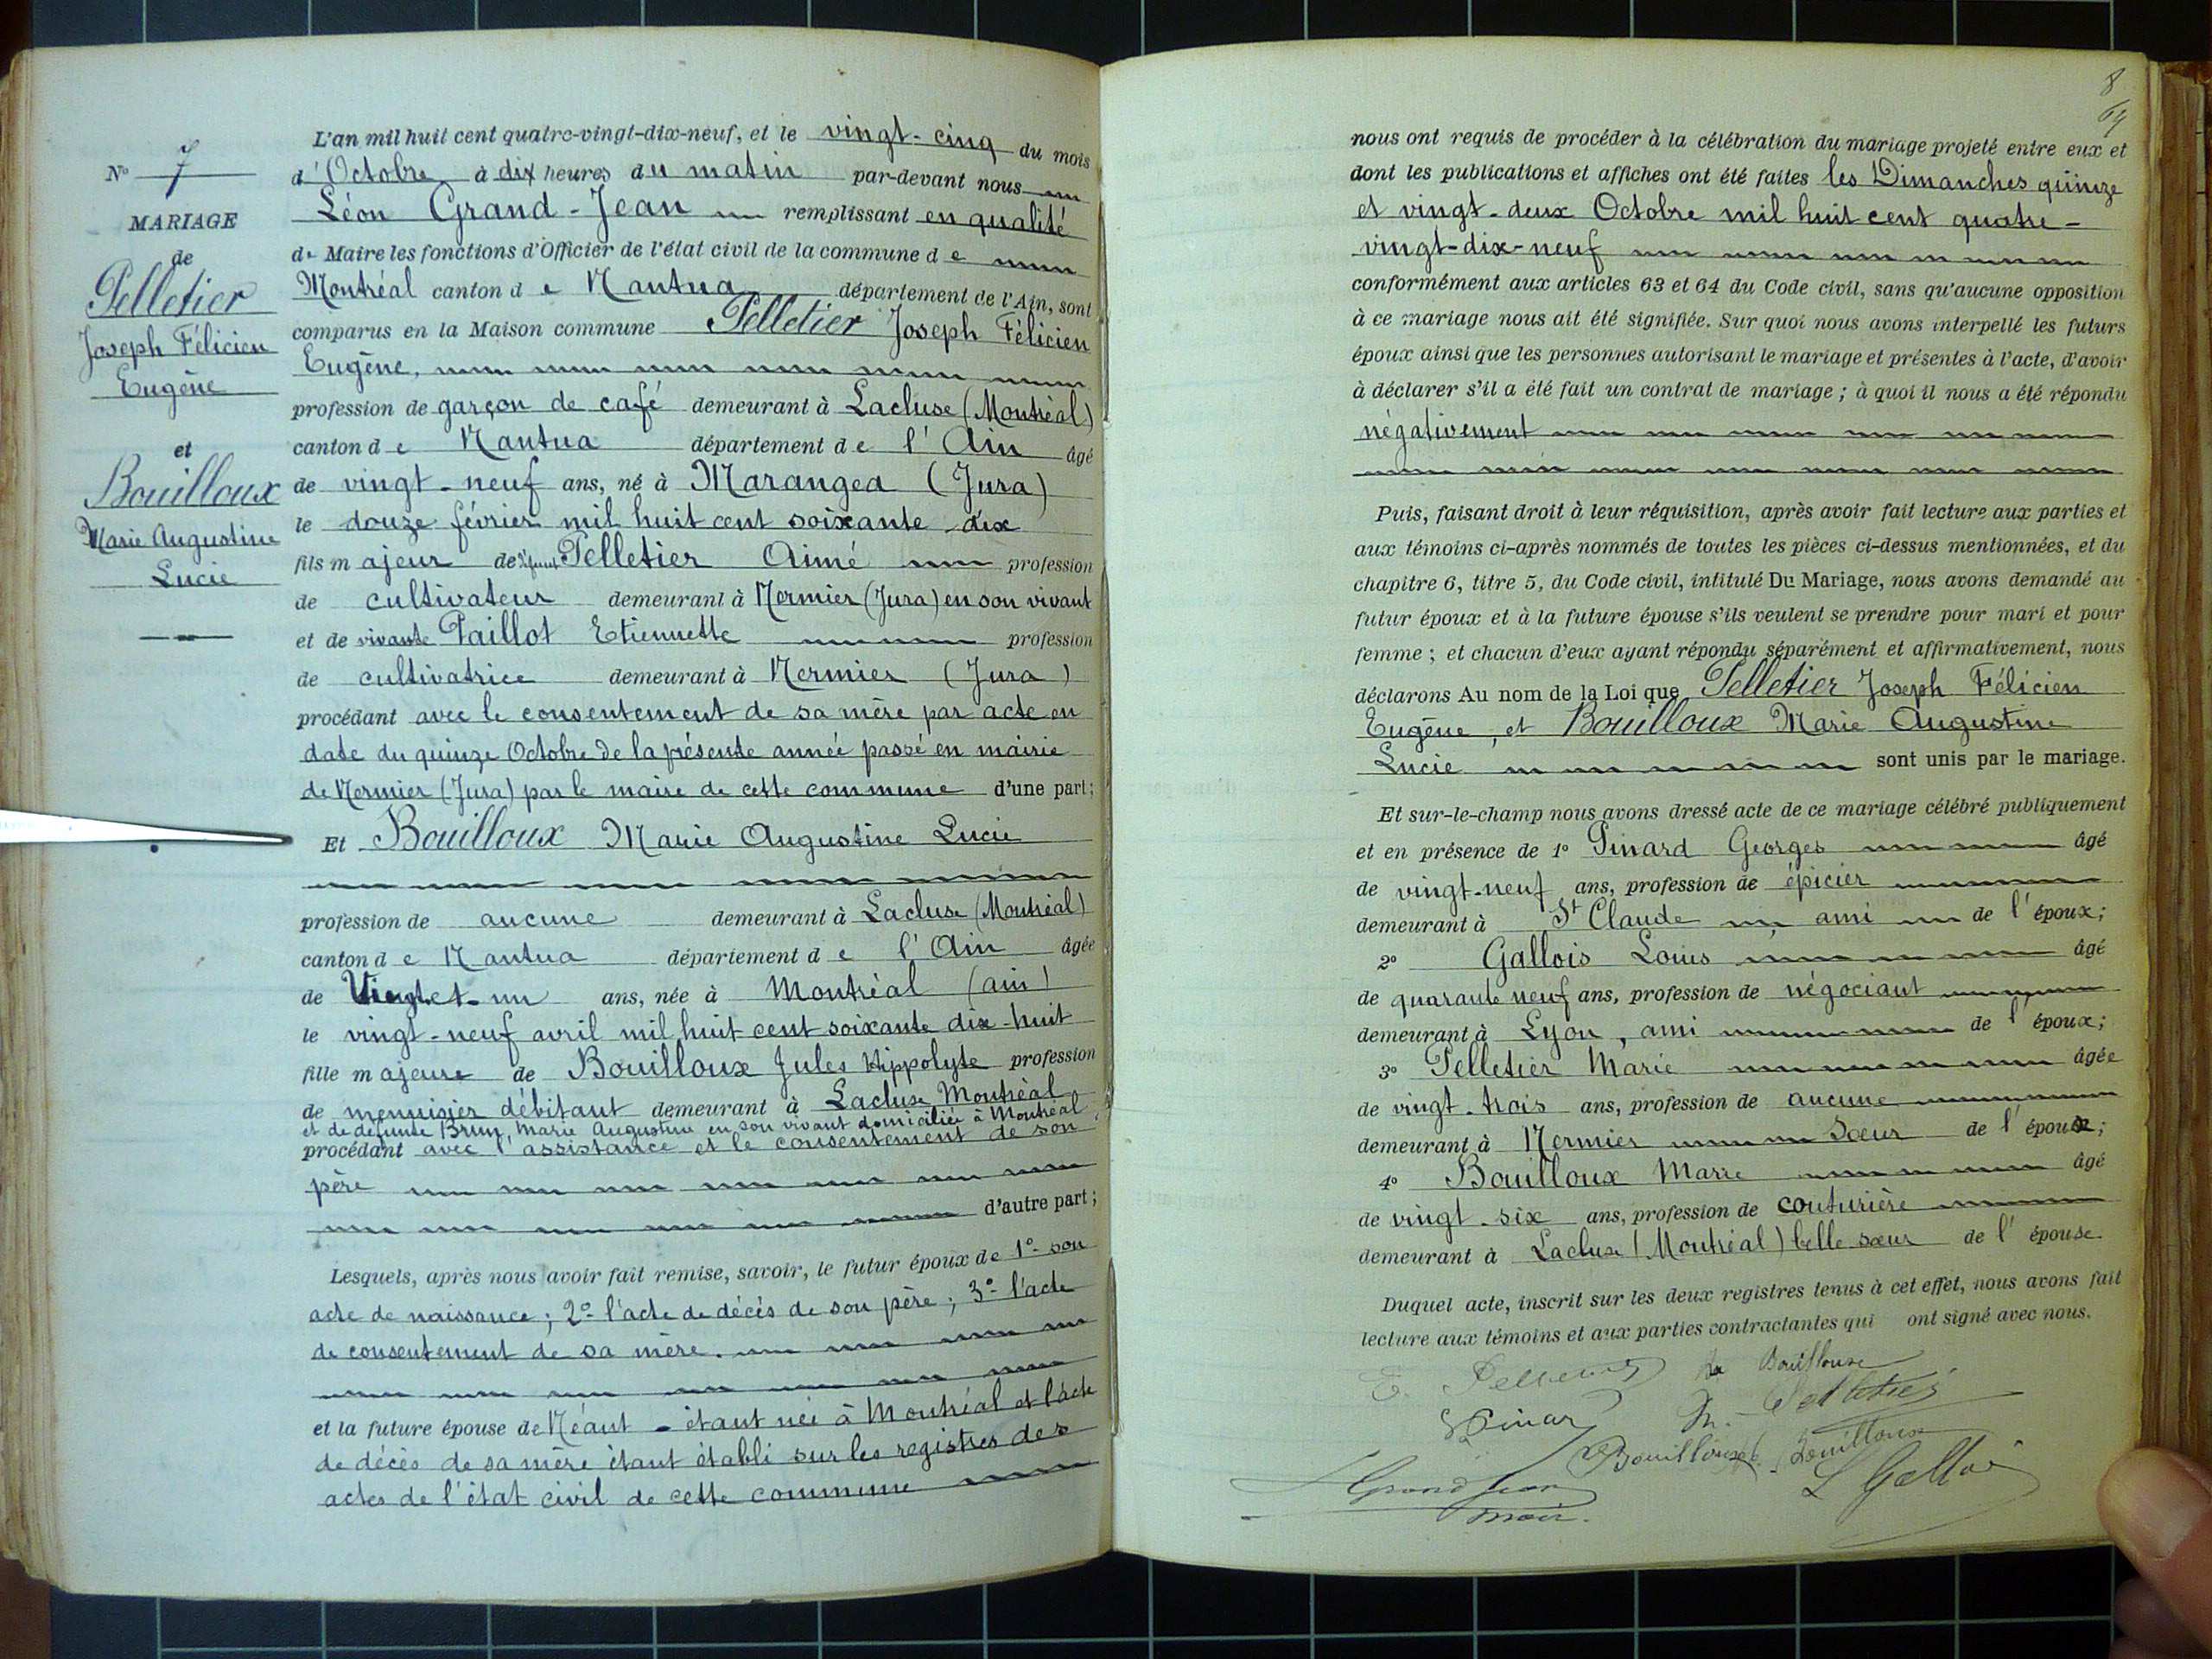 N° 7
MARIAGE
de
Pelletier
Joseph Félicien
Eugène
et
Bouilloux
Marie Augustine
Lucie
L'an mil huit cent quatre-vingt-dix-neuf, et le vingt-cinq du mois
d'Octobre à dix heures du matin par-devant nous
Léon Grand-Jean remplissant en qualité
de Maire les fonctions d'Officier de l'état civil de la commune de
Montréal canton de Nantua département de l'Ain, sont
comparus en la Maison commune Pelletier Joseph Félicien
Eugène,
profession de garçon de café demeurant à Lacluse (Montréal)
canton de Nantua département de l'Ain âgé
de vingt-neuf ans, né à Marangea (Jura)
le douze février mil huit cent soixante dix
fils majeur de défunt Pelletier Aimé profession
de cultivateur demeurant à Nermier (Jura) en son vivant
et de vivante Paillot Etiennette profession
de cultivatrice demeurant à Nermier (Jura)
procédant avec le consentement de sa mère par acte en
date du quinze Octobre de la présente année passé en mairie
de Nermier (Jura) par le maire de cette commune d'une part;
Et Bouilloux Marie Augustine Lucie
profession de aucune demeurant à Lacluse (Montréal)
canton de Nantua département de l'Ain âgée
de Vingt et un ans, née à Montréal (ain)
le vingt-neuf avril mil huit cent soixante dix-huit
fille majeure de Bouilloux Jules Hippolyte profession
de menuisier débitant demeurant à Lacluse Montréal
et de défunte Brun, Marie Augustine en son vivant domiciliée à Montréal
procédant avec l'assistance et le consentement de son
père
d'autre part;
Lesquels, après nous avoir fait remise, savoir, le futur époux de 1° son
acte de naissance; 2° l'acte de décès de son père; 3° l'acte
de consentement de sa mère.
et la future épouse de Néant - étant née à Montréal et l'acte
de décès de sa mère étant établi sur les registres des
actes de l'état civil de cette commune
8
64
nous ont requis de procéder à la célébration du mariage projeté entre eux et
dont les publications et affiches ont été faites les Dimanches quinze
et vingt-deux Octobre mil huit cent quatre-
vingt-dix-neuf
conformément aux articles 63 et 64 du Code civil, sans qu'aucune opposition
à ce mariage nous ait été signifiée. Sur quoi nous avons interpellé les futurs
époux ainsi que les personnes autorisant le mariage et présentes à l'acte, d'avoir
à déclarer s'il a été fait un contrat de mariage; à quoi il nous a été répondu
négativement
Puis, faisant droit à leur réquisition, après avoir fait lecture aux parties et
aux témoins ci-après nommés de toutes les pièces ci-dessus mentionnées, et du
chapitre 6, titre 5, du Code civil, intitulé Du Mariage, nous avons demandé au
futur époux et à la future épouse s'ils veulent se prendre pour mari et pour
femme; et chacun d'eux ayant répondu séparément et affirmativement, nous
déclarons Au nom de la Loi que Pelletier Joseph Félicien
Eugène, et Bouilloux Marie Augustine
Lucie sont unis par le mariage.
Et sur-le-champ nous avons dressé acte de ce mariage célébré publiquement
et en présence de 1° Pinard Georges âgé
de vingt-neuf ans, profession de épicier
demeurant à St Claude ami de l'époux;
2° Gallois Louis âgé
de quarante neuf ans, profession de négociant
demeurant à Lyon, ami de l'époux;
3° Pelletier Marie âgée
de vingt-trois ans, profession de aucune
demeurant à Nermier soeur de l'époux;
4° Bouilloux Marie âgé
de vingt-six ans, profession de couturière
demeurant à Lacluse (Montréal) belle soeur de l'épouse.
Duquel acte, inscrit sur les deux registres tenus à cet effet, nous avons fait
lecture aux témoins et aux parties contractantes qui ont signé avec nous.
E. Pelletier Bouilloux
Pinard M. Pelletier
Bouilloux Bouilloux
L Grand Jean L Gallois
maire.